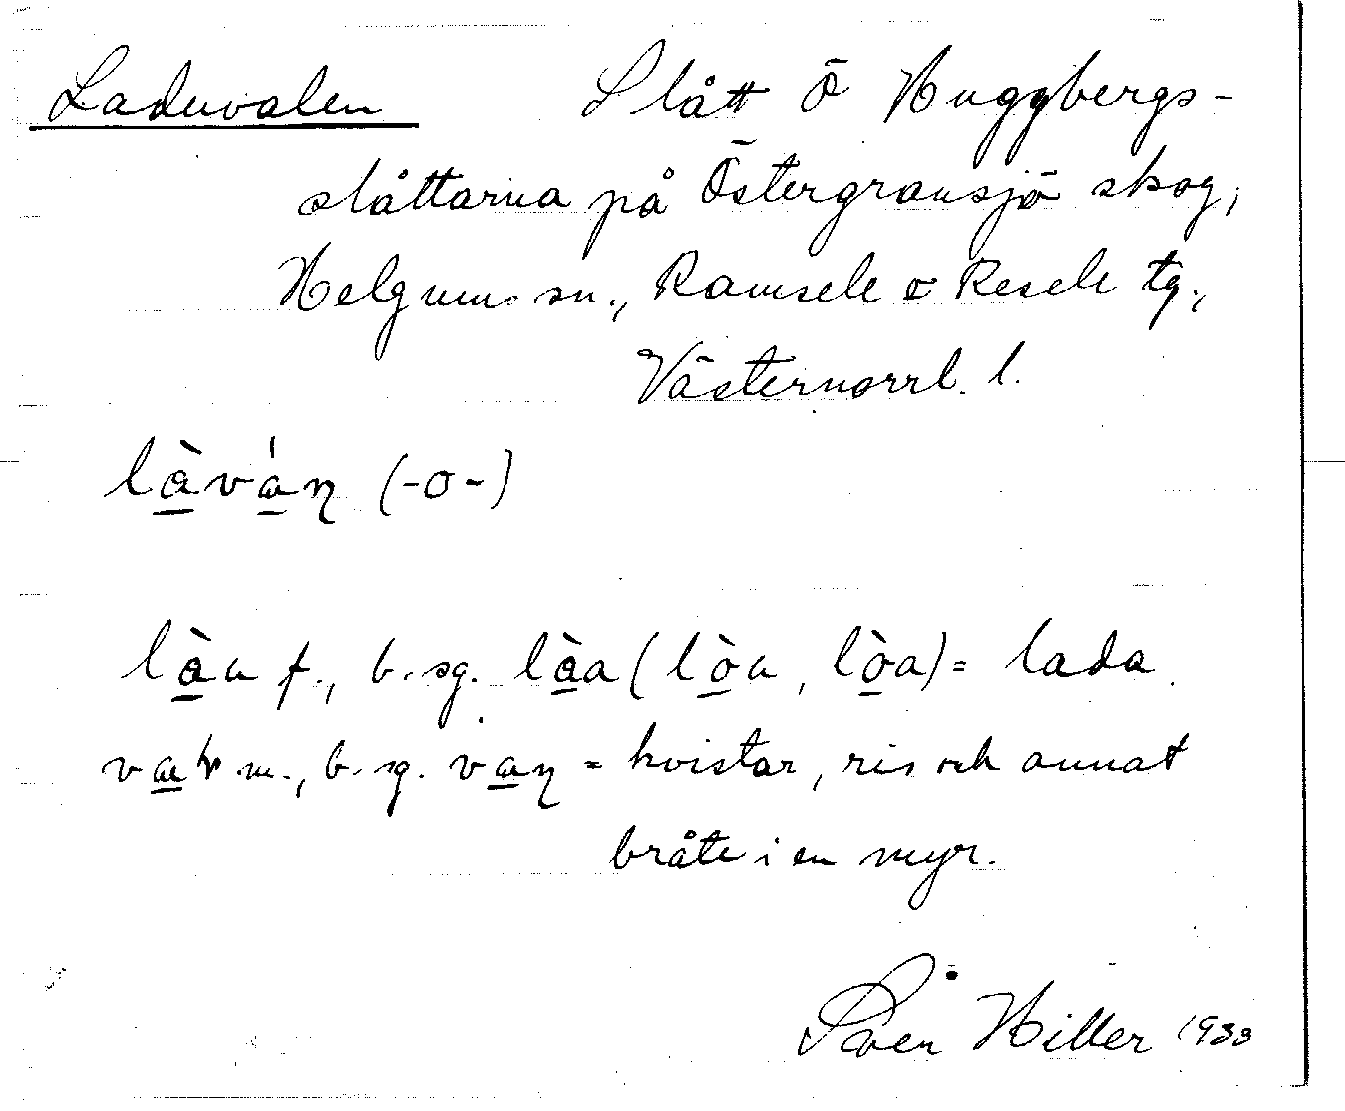 Laduvalen Slått Ö Huggbergs-
slåttarna på Östergransjö skog,
Helgum sn., Ramsele o Resele tg.,
Västernorrl. l.
là̱vá̱ɳ (-o-)
là̱a f., b. sg. là̱a (lò̱a, lò̱a) = lada
m., b. sg. va̱ɳ = kvistar, ris och annat
bråte i en myr.
Sven Hiller 1933